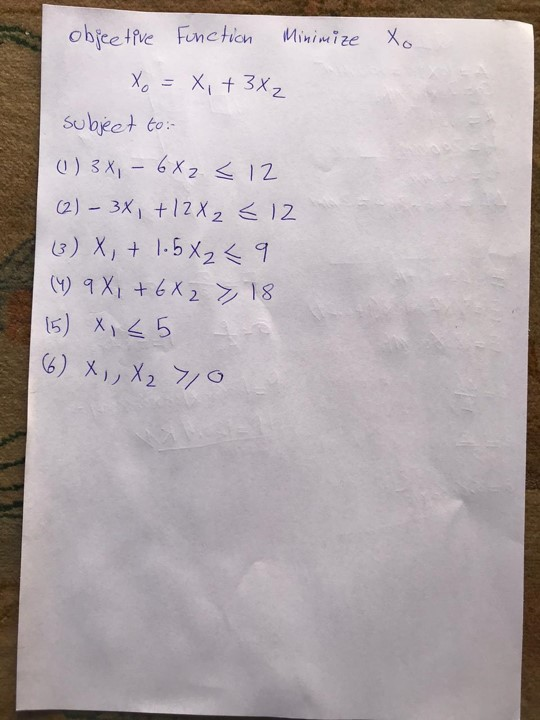 Objective Function Minimize X₀
X₀ = X₁ + 3X₂
subject to:-
(1) 3X₁ - 6X₂ ≤ 12
(2) - 3X₁ + 12X₂ ≤ 12
(3) X₁ + 1.5X₂ ≤ 9
(4) 9X₁ + 6X₂ ≥ 18
(5) X₁ ≤ 5
(6) X₁, X₂ ≥ 0